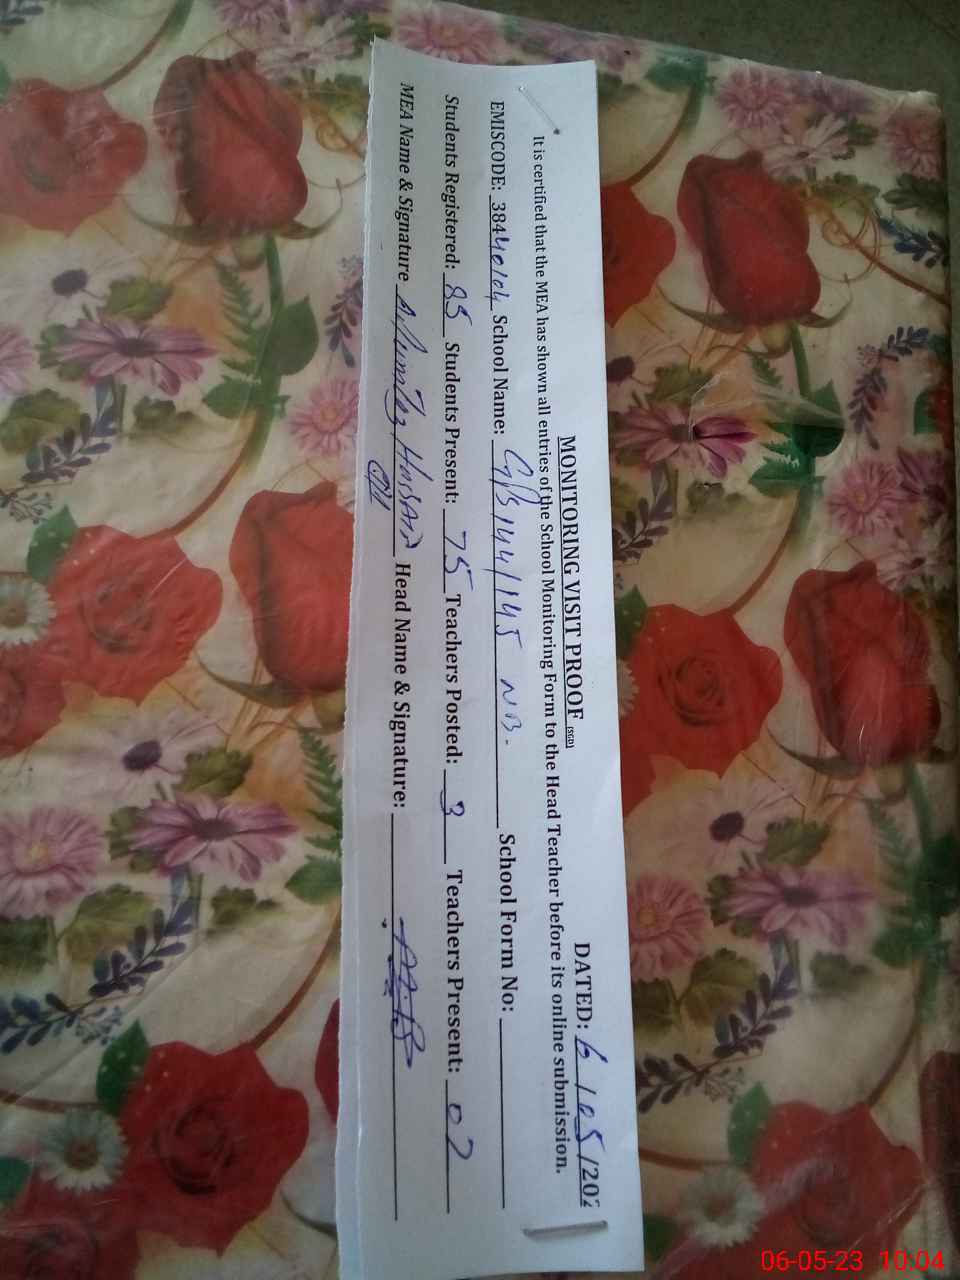 MONITORING VISIT PROOF (SGD) DATED: 6 / 05 / 202
It is certified that the MEA has shown all entries of the School Monitoring Form to the Head Teacher before its online submission.
EMISCODE: 38440104 School Name: G/B 144/145 NB. School Form No:
Students Registered: 85 Students Present: 75 Teachers Posted: 3 Teachers Present: 02
MEA Name & Signature Hassan Head Name & Signature:
06-05-23 10:04